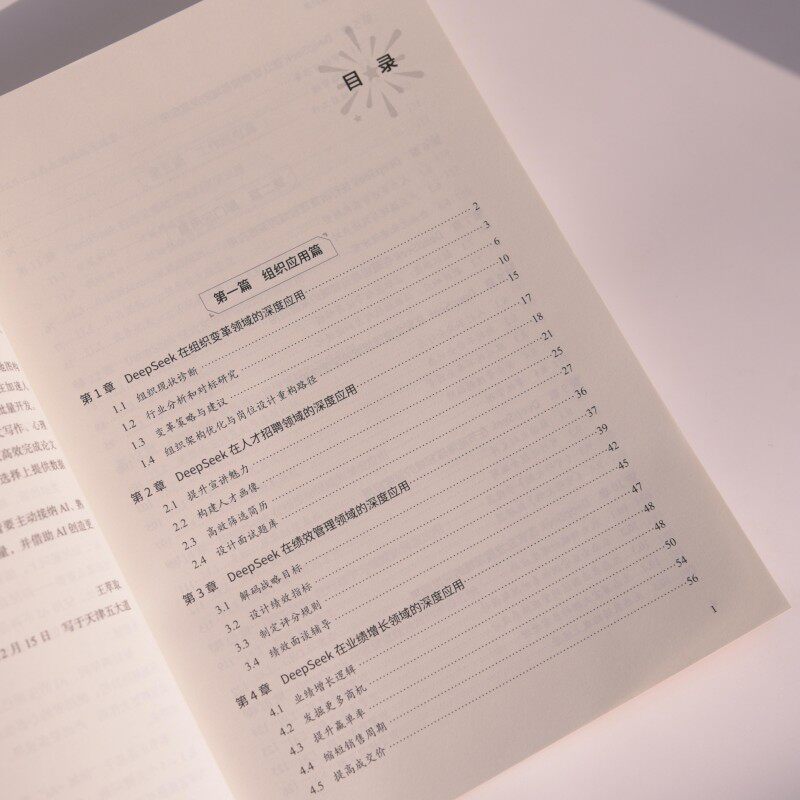 在加速人
批量开发。
写作、心理
高效完成论文
选择上提供数据
需要主动接纳 AI、
量，并借助 AI 创造更
2 月 15 日 写于天津五大道
目 录
第一篇 组织应用篇
第 1 章 DeepSeek 在组织变革领域的深度应用 2
1.1 组织现状诊断 3
1.2 行业分析和对标研究 6
1.3 变革策略与建议 10
1.4 组织架构优化与岗位设计重构路径 15
第 2 章 DeepSeek 在人才招聘领域的深度应用 17
2.1 提升宣讲魅力 18
2.2 构建人才画像 21
2.3 高效筛选简历 25
2.4 设计面试题库 27
第 3 章 DeepSeek 在绩效管理领域的深度应用 36
3.1 解码战略目标 37
3.2 设计绩效指标 39
3.3 制定评分规则 42
3.4 绩效面谈辅导 45
第 4 章 DeepSeek 在业绩增长领域的深度应用 47
4.1 业绩增长逻辑 48
4.2 发掘更多商机 48
4.3 提升赢单率 50
4.4 缩短销售周期 54
4.5 提高成交价 56
1